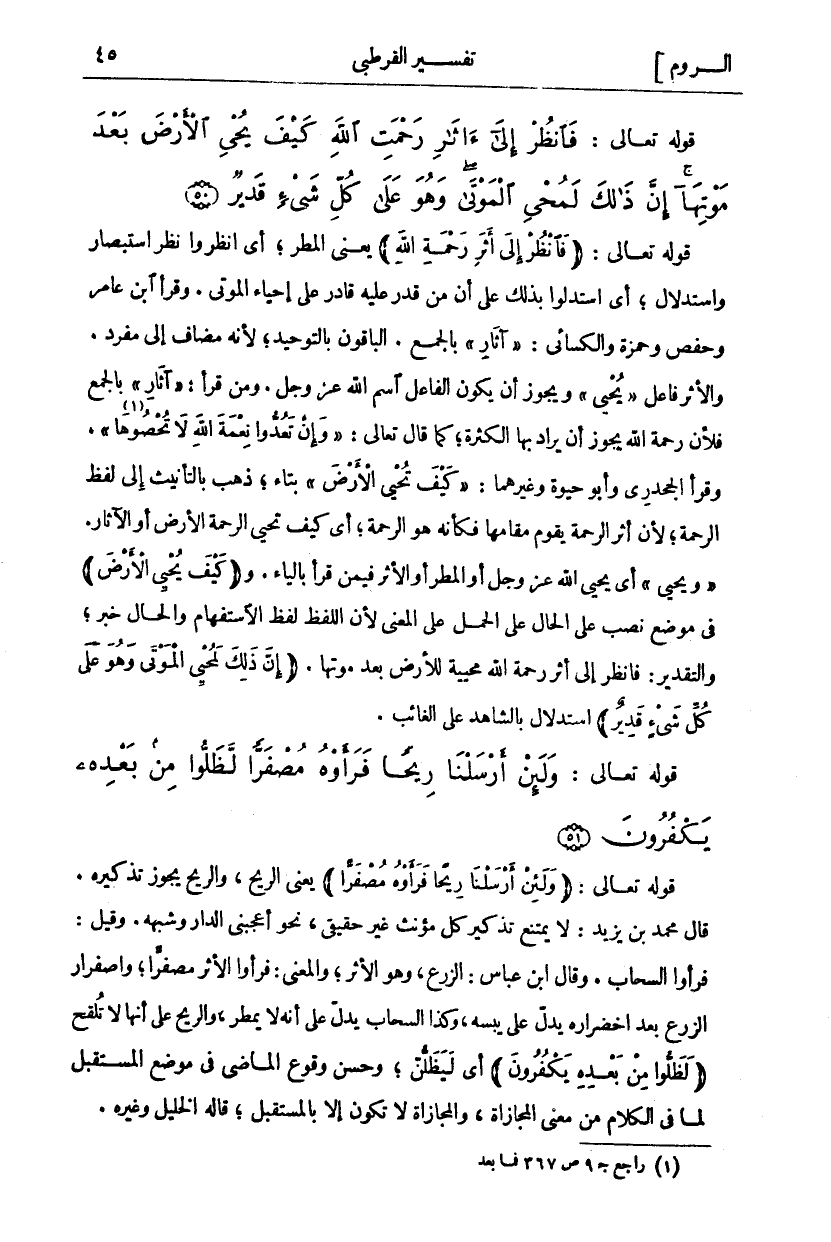 الـــروم ] تفســـير القرطبى ٤٥
قوله تعالى : فَٱنظُرْ إِلَىٰٓ ءَاثَٰرِ رَحْمَتِ ٱللَّهِ كَيْفَ يُحْيِ ٱلْأَرْضَ بَعْدَ
مَوْتِهَآ ۚ إِنَّ ذَٰلِكَ لَمُحْيِ ٱلْمَوْتَىٰ ۖ وَهُوَ عَلَىٰ كُلِّ شَىْءٍ قَدِيرٌ ۝٥٠
قوله تعـالى : ﴿ فَٱنْظُرْ إِلَى أَثَرِ رَحْمَـةِ اللهِ ﴾ يعـنى المطر ؛ أى انظروا نظر استبصار
واستدلال ؛ أى استدلوا بذلك على أن من قدر عليه قادر على إحياء الموتى . وقرأ ٱبن عامر
وحفص وحمزة والكسائى : « آثَارِ » بالجمع . الباقون بالتوحيد؛ لأنه مضاف إلى مفرد .
والأثر فاعل « يُحْيِي » ويجوز أن يكون الفاعل ٱسم الله عز وجل . ومن قرأ : « آثَارِ » بالجمع
فلأن رحمة الله يجوز أن يراد بها الكثرة؛ كما قال تعالى : « وَإِنْ تَعُدُّوا نِعْمَةَ اللهِ لَا تُحْصُوهَا(١) » .
وقرأ الجحدرى وأبو حيوة وغيرهما : « كَيْفَ تُحْيِي الْأَرْضَ » بتاء ؛ ذهب بالتأنيث إلى لفظ
الرحمة ؛ لأن أثر الرحمة يقوم مقامها فكأنه هو الرحمة ؛ أى كيف تحيي الرحمة الأرض أو الآثار.
« ويحيي » أى يحيي الله عز وجل أو المطر أو الأثر فيمن قرأ بالياء . و﴿ كَيْفَ يُحْيِي الْأَرْضَ ﴾
فى موضع نصب على الحال على الحمـل على المعنى لأن اللفظ لفظ الاستفهام والحـال خبر ؛
والتقدير: فانظر إلى أثر رحمة الله محيية للأرض بعد موتها . ﴿ إِنَّ ذَلِكَ لَمُحْيِي الْمَوْتَى وَهُوَ عَلَى
كُلِّ شَيْءٍ قَدِيرٌ ﴾ استدلال بالشاهد على الغائب .
قوله تعـالى : وَلَئِنْ أَرْسَلْنَا رِيحًـا فَرَأَوْهُ مُصْفَرًّا لَّظَلُّوا مِنۢ بَعْدِهِۦ
يَـكْفُرُونَ ۝٥١
قوله تعـالى : ﴿ وَلَئِنْ أَرْسَلْنَا رِيحًا فَرَأَوْهُ مُصْفَرًّا ﴾ يعنى الريح ، والريح يجوز تذكيره .
قال محمد بن يزيد : لا يمتنع تذكير كل مؤنث غير حقيقى ، نحو أعجبنى الدار وشبهه . وقيل :
فرأوا السحاب . وقال ابن عباس : الزرع ، وهو الأثر ؛ والمعنى : فرأوا الأثر مصفرًّا ؛ واصفرار
الزرع بعد اخضراره يدلّ على يبسه ، وكذا السحاب يدلّ على أنه لا يمطر ، والريح على أنها لا تُلقح
﴿ لَظَلُّوا مِنْ بَعْـدِهِ يَكْفُرُونَ ﴾ أى لَيَظَلُّنّ ؛ وحسن وقوع المـاضى فى موضع المستقبل
لمـا فى الكلام من معنى المجازاة ، والمجازاة لا تكون إلا بالمستقبل ؛ قاله الخليل وغيره .
(١) راجع جـ ٩ ص ٣٦٧ فـا بعد